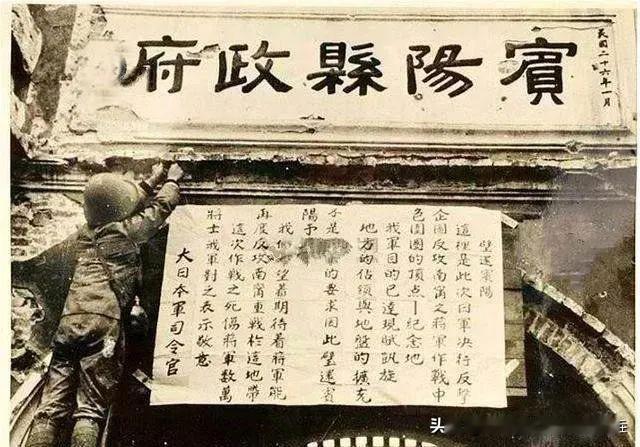 賓陽縣政府
民國二十六年一月
璧還賓陽
這裡是此次日軍決行反擊
企圖反攻南甯之蔣軍作戰中
色圍圈的頂點—紀念地
我軍目的已達現賦凱旋
地方的佔領與地盤的擴充
不是的要求因此璧還賓
陽予
我希望着期待着蔣軍能
再度反攻南甯重戰於這地帶
這次作戰之死傷蔣軍數萬
將士我軍對之表示敬意
大日本軍司令官
头